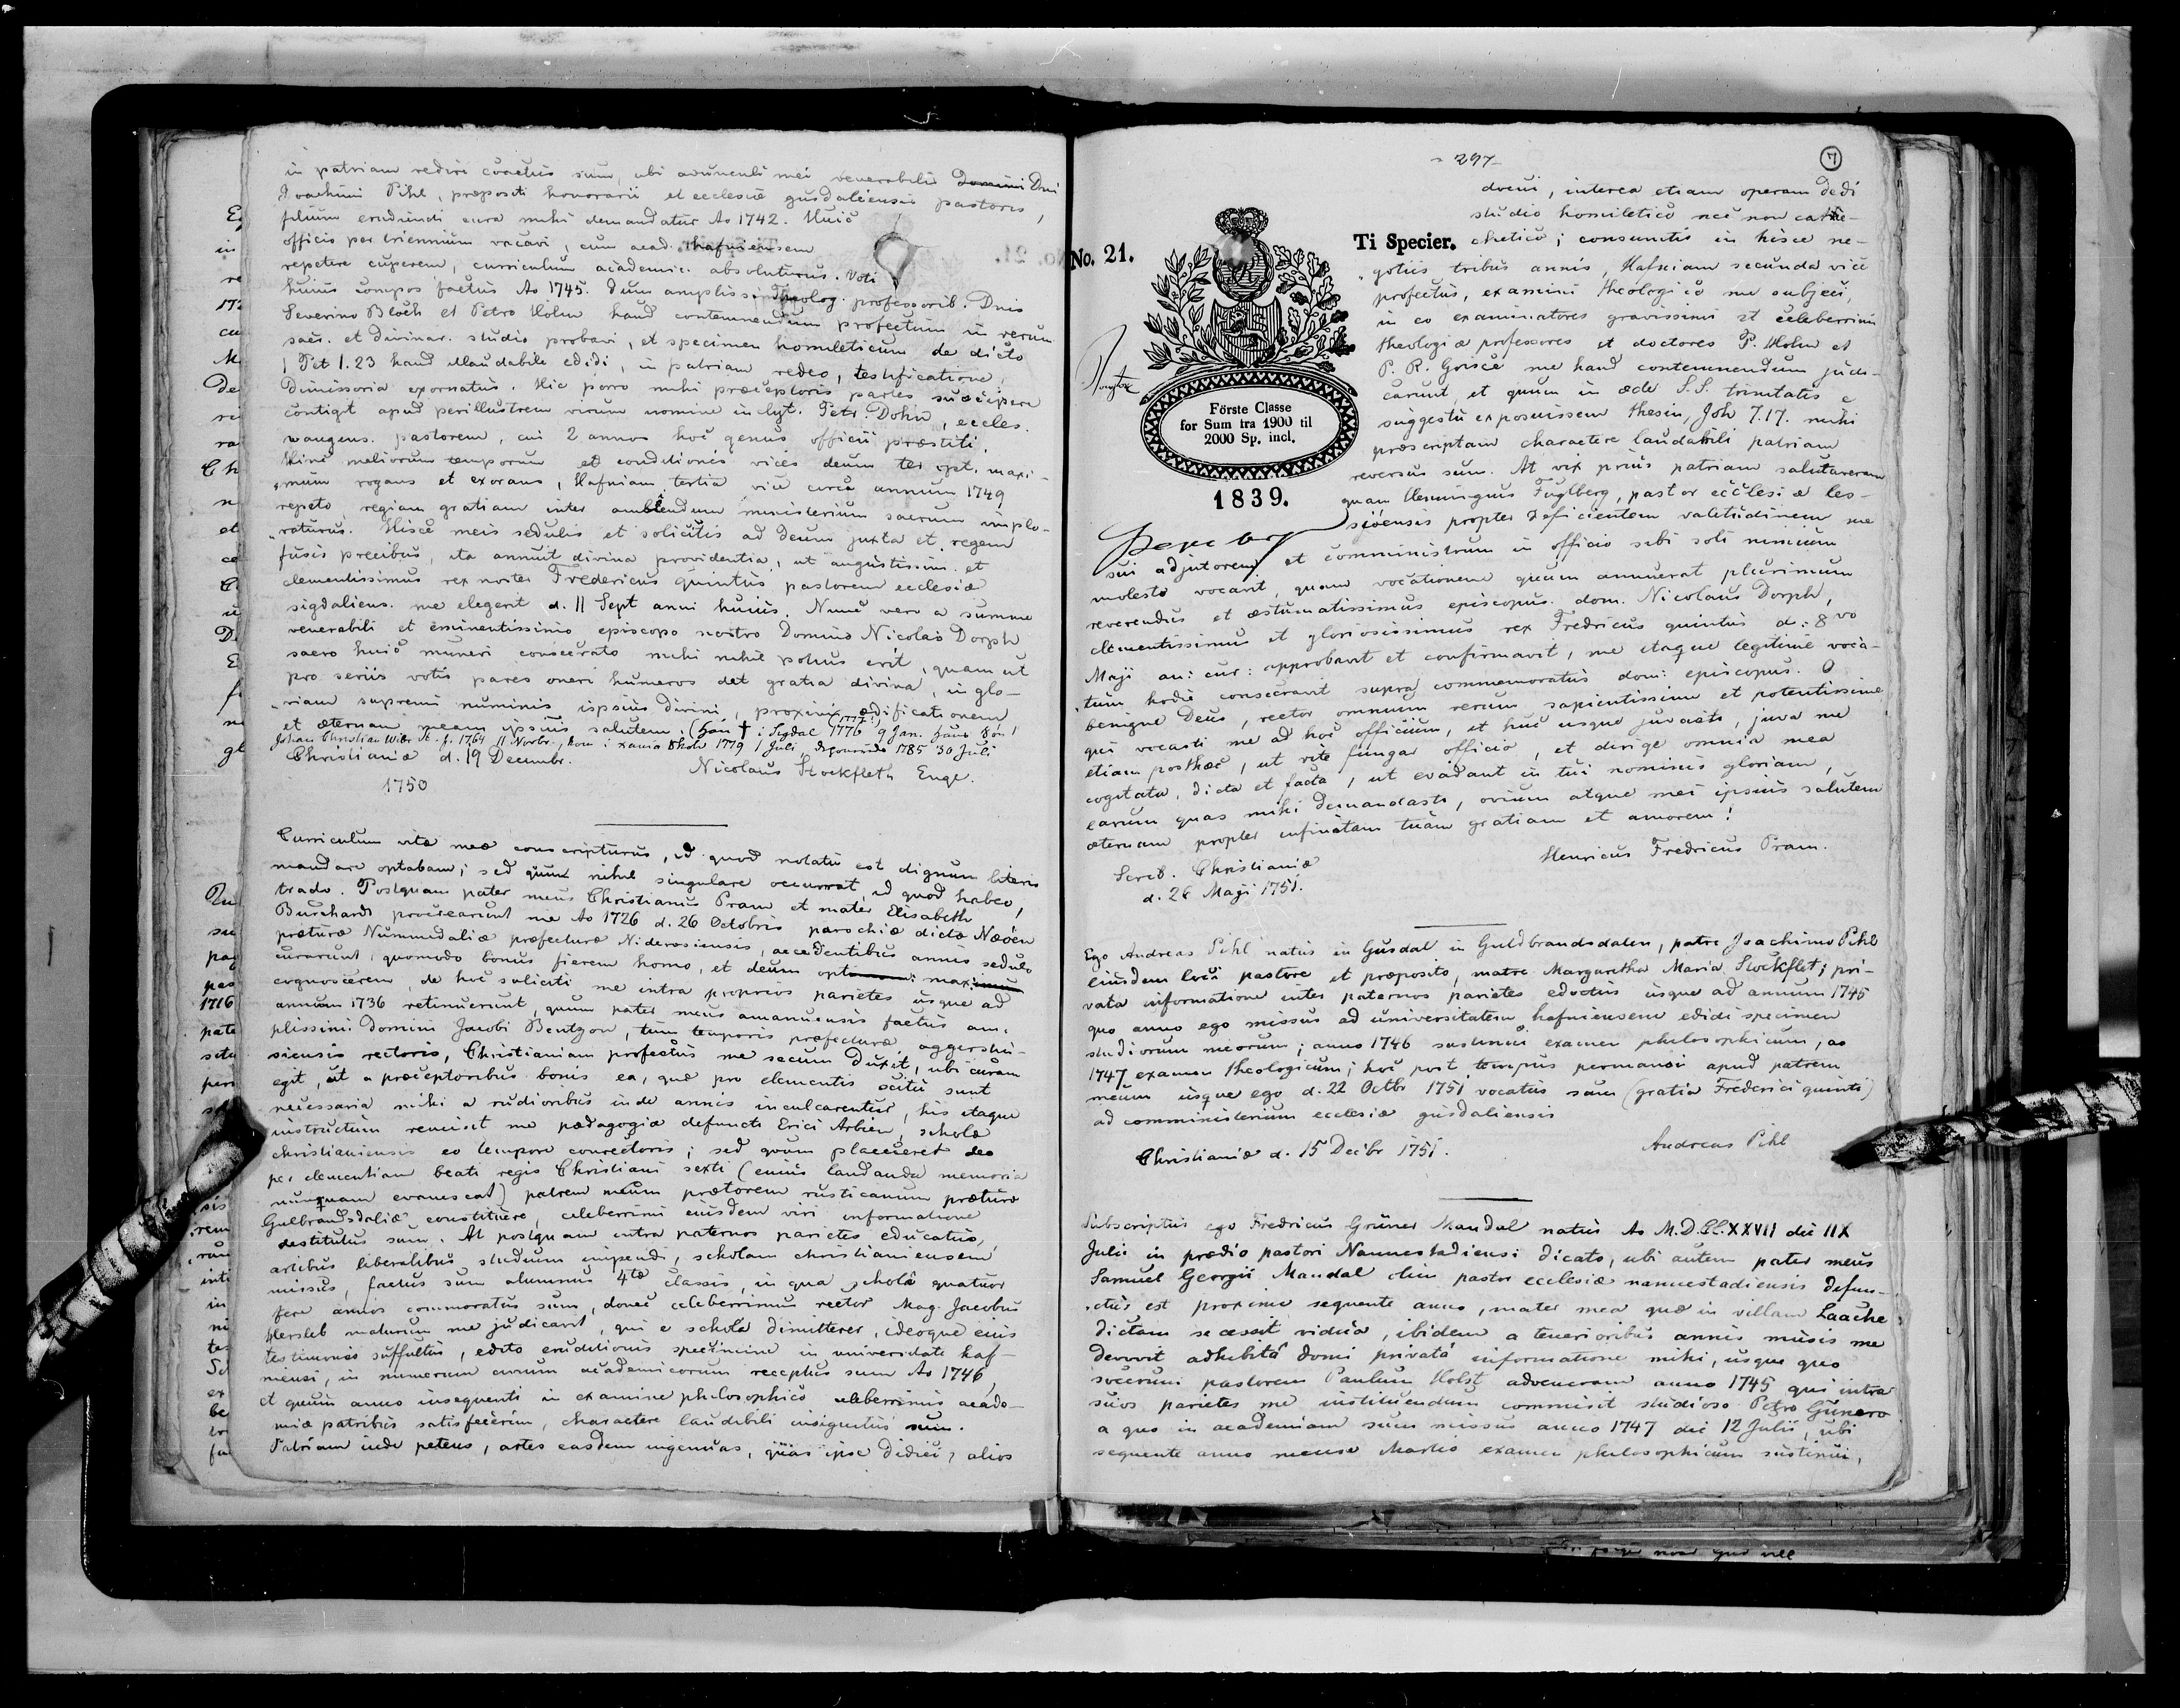 in patriam redire coactus sum, ubi avunculi mei venerabilis Domini Dni
Joachimi Pihl, præpositi honorarii et ecclesiæ gusdaliensis pastoris,
filium erudiundi cura mihi demandatur Ao 1742. Huic
officio per triennium vacavi, cum acad. hafniensem
repetere cuperem, curriculum academic. absoluturus. Voti
huius compos factus Ao 1745. Dum ampliss. Theolog. professorib. Dnis
Severino Bloch et Petro Holm haud contemnendum profectum in rerum
sacr. et divinar. studio probavi, et specimen homileticum de dicto
1 Pet 1.23 haud illaudabile edidi, in patriam redeo, testificatione
Dimissoria exornatus. Hic porro mihi præceptoris partes suscipere
contigit apud perillustrem virum nomine inclyt. Petr. Dohn, eccles.
wangens. pastorem, cui 2 annos hoc genus officii præstiti.
Hinc meliorum temporum et conditionis vices deum ter opt. maxi-
mum rogans et exorans, Hafniam tertia vice circa annum 1749
repeto, regiam gratiam inter ambiendum ministerium sacrum implo-
raturus. Hisce meis sedulis et solicitis ad Deum juxta et regem
fusis precibus, ita annuit divina providentia, ut augustissim. et
clementissimus rex noster Fredericus quintus pastorem ecclesiæ
sigdaliens. me elegerit d. 11 Sept anni huius. Nunc vero a summe
venerabili et eminentissimo episcopo nostro Domino Nicolao Dorph
sacro huic muneri consecrato mihi nihil potius erit, quam ut
pro seriis votis pares oneri humeros det gratia divina, in glo-
riam supremi numinis ipsius divini, proximi ædificationem
et æternam meam ipsius salutem. (han † i Sigdal 1776 (1777?) 9 Jan. hans
Johan Christian f. 1764 11 Novbr., kom i xania Skole 1779 1 Juli, 1785 30 Juli
Christianiæ d. 19 Decembr.
Nicolaus Stockfleth Enge.
1750
Curriculum vitæ meæ conscripturus, id quod notatu est dignum literis
mandare optabam; sed quum nihil singulare occurrat, id quod habeo,
trado. Postquam pater meus Christianus Pram et mater Elisabeth
Burchardt procrearunt me Ao 1726 d. 26 Octobris parochiæ dictæ Næröen
præturæ Nummedaliæ præfecturæ Niderosiensis, accedentibus annis sedulo
curarunt, quomodo bonus fierem homo, et deum opt. max.
cognoscerem, de hoc soliciti me intra proprios parietes usque ad
annum 1736 retinuerunt, quum pater meus amanuensis factus am-
plissimi Domini Jacobi Bentzon, tum temporis præfecturæ aggershu-
siensis rectoris, Christianiam profectus me secum duxit, ubi curam
egit, ut a præceptoribus bonis ea, quæ pro elementis scitu sunt
necessaria mihi a rudioribus inde annis inculcarentur, his itaque
instructum remisit me pædagogiæ defuncti Erici Arbien, scholæ
christianiensis eo tempore conrectoris; sed quum placueret deo
per clementiam beati regis Christiani sexti (cuius laudanda memoria
nunquam evanescat) patrem meum prætorem rusticanum præturæ
Gulbrandsdaliæ constituere, celeberrimi eiusdem viri informatione
destitutus sum. At postquam intra paternos parietes educatus,
artibus liberalibus studium impendi, scholam christianiensem
missus, factus sum alumnus 4tæ classis, in qua scholâ quatuor
fere annos commoratus sum, donec celeberrimus rector Mag. Jacobus
Hersleb maturum me judicavit, qui e schola dimitterer, ideoque eius
testimonio suffultus, edito eruditionis specimine in universitate haf-
niensi, in numerum civium academicorum receptus sum Ao 1746,
et quum anno insequenti in examine philosophico celeberrimis acade-
miæ patribus satisfecerim, charactere laudibili insignitus sum.
Patriam inde petens, artes easdem ingenuas, quas ipse didici, alios
- 297 -
7
docui, interea etiam operam dedi
studio homiletico nec non cate-
chetico; consumtis in hisce ne-
gotiis tribus annis, Hafniam secunda vice
profectus, examini theologico me subjeci,
in eo examinatores gravissimi et celeberrimi
theologiæ professores et doctores P. Holm et
P. R. Gorisce me haud contemnendum judi-
carunt, et quum in æde S.S. trinitatis e
suggestu exposuissem thesin, Joh 7.17. mihi
præscriptam charactere laudabili patriam
reversus sum. At vix prius patriam salutaveram
quam Henningus Fuglberg, pastor ecclesiæ les-
sjöensis propter deficientem valetudinem me
sui adjutorem et comministrum in officio sibi soli nimium
molesto vocavit, quam vocationem quum annuerat plurimum
reverendus et æstumatissimus episcopus dom. Nicolaus Dorph,
clementissimus et gloriosissimus rex Fredricus quintus d: 8vo
Maji an: cur: approbavit et confirmavit, me itaque legitime voca-
tum hodie consecravit supra commemoratus dom: episcopus. O
benigne Deus, rector omnium rerum sapientissime et potentissime
qui vocasti me ad hoc officium, et huc usque juvasti, juva me
etiam posthæc, ut rite fungar officio, et dirige omnia mea
cogitata, dicta et facta, ut evadant in tui nominis gloriam,
earum quas mihi demandasti, ovium atque mei ipsius salutem
æternam propter infinitam tuam gratiam et amorem!
Henricus Fredricus Pram.
Scrib. Christianiæ
d. 26 Maji 1751.
Ti Specier.
No. 21.
Förste Classe
for Sum fra 1900 til
2000 Sp. incl.
1839.
Ego Andreas Pihl natus in Gusdal in Guldbrandsdalen, patre Joachimo Pihl
eiusdem loci pastore et præposito, matre Margaretha Maria Stockflet; pri-
vata informatione inter paternos parietes edoctus usque ad annum 1745
quo anno ego missus ad universitatem hafniensem edidi specimen
studiorum meorum; anno 1746 sustinui examen philosophicum, ao
1747 examen theologicum; hoc post tempus permansi apud patrem
meum usque ego d. 22 Octbr 1751 vocatus sum (gratia Frederici quinti)
ad comministerium ecclesiæ gusdaliensis
Christianiæ d. 15 Decbr 1751.
Andreas Pihl
Subscriptus ego Fredricus Grüner Mandal natus Ao M.D.CC.XXVII die IIX
Julii in prædio pastori Nannestadiensi dicato, ubi autem pater meus
Samuel Georgii Mandal olim pastor ecclesiæ nannestadiensis defun-
ctus est proxime sequente anno, mater mea quæ in villam Laache
dictam se cessit vidua, ibidem a tenerioribus annis musis me
devovit adhibitâ domi privatâ informatione mihi, usque quo
socerum pastorem Paulum Holst adveneram anno 1745 qui intra
suos parietes me instituendum commisit studioso Petro Günero
a quo in academiam sum missus anno 1747 die 12 Julii, ubi
sequente anno mense Martio examen philosophicum sustinui,